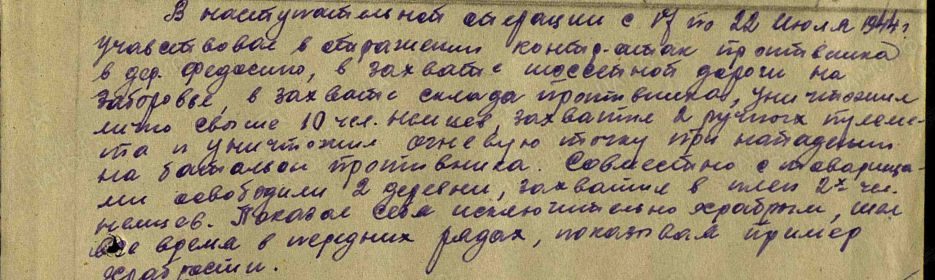 В наступательной операции с 17 по 22 июля 1944 г.
участвовал в отражении контр-атак противника
в дер. Федосино, в захвате шоссейной дороги на
Заборовье, в захвате склада противника, уничтожил
лично свыше 10 чел. немцев, захватил 2 ручных пулеме-
та и уничтожил огневую точку при нападении
на батальон противника. Совместно с товарища-
ми освободили 2 деревни, захватил в плен 2 чел.
немцев. Показал себя исключительно храбрым, шел
все время в передних рядах, показывая пример
храбрости.